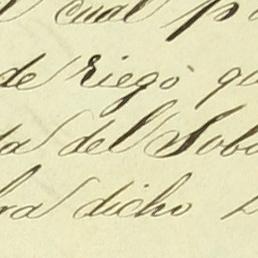 cual p
de riego qu
da del Sob
ra dicho